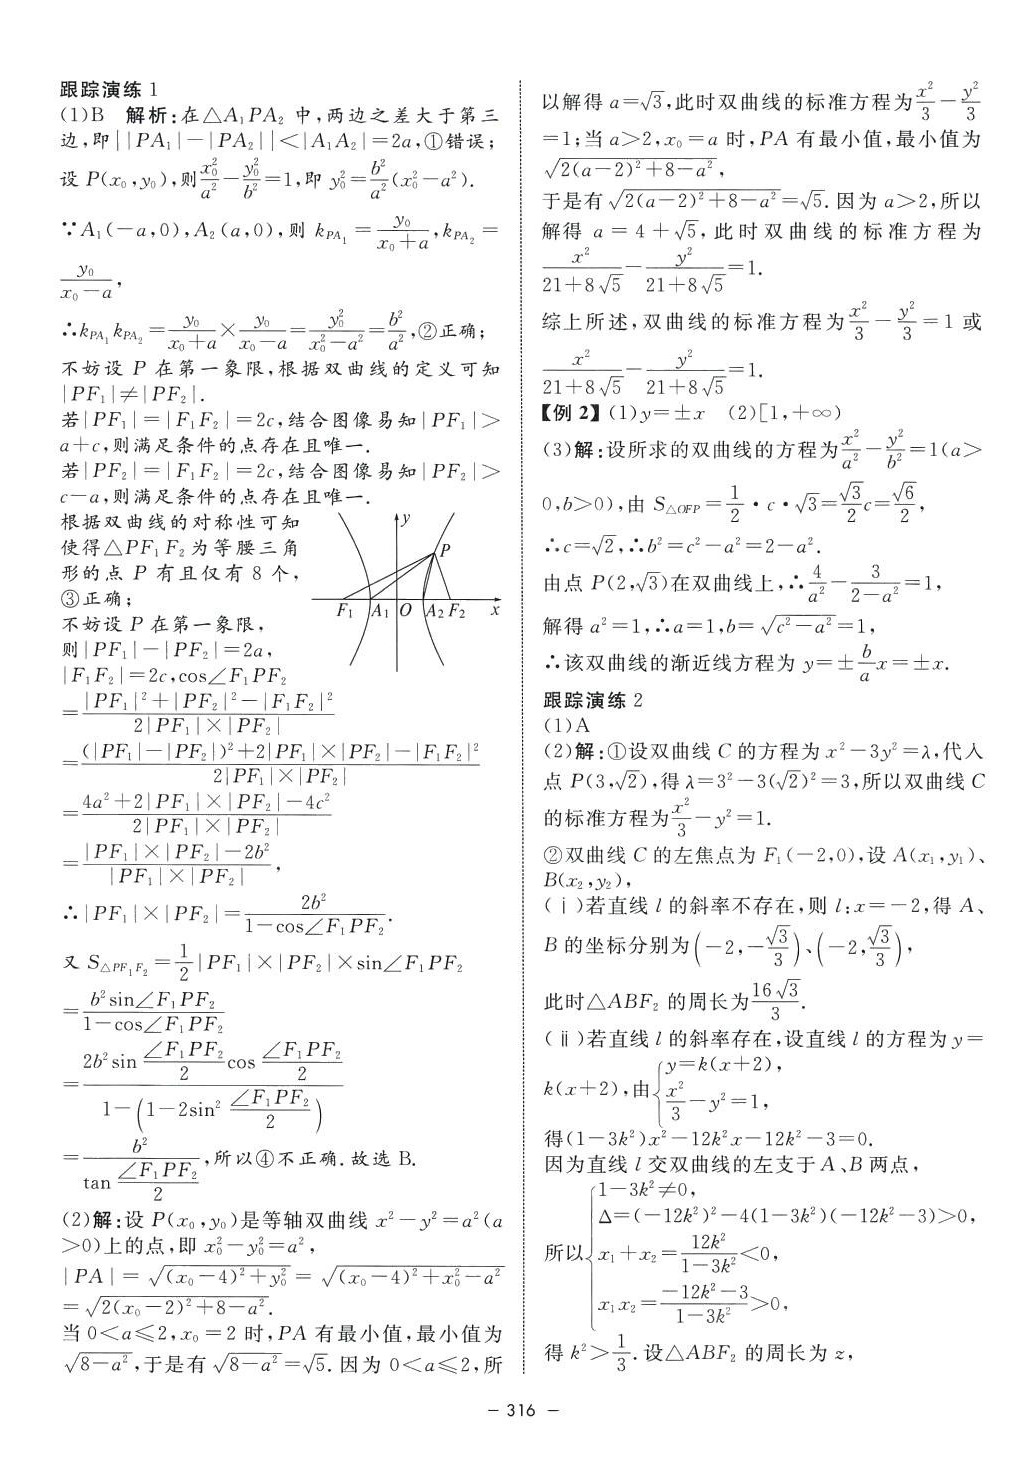 跟踪演练 1
(1)B 解析:在△A₁PA₂ 中,两边之差大于第三
边,即||PA₁|－|PA₂||＜|A₁A₂|=2a,①错误;
设 P(x₀,y₀),则x₀²/a²－y₀²/b²=1,即 y₀²=b²/a²(x₀²－a²).
∵A₁(－a,0),A₂(a,0),则 k_{PA₁}=y₀/(x₀＋a),k_{PA₂}=
y₀/(x₀－a),
∴k_{PA₁}k_{PA₂}=y₀/(x₀＋a)×y₀/(x₀－a)=y₀²/(x₀²－a²)=b²/a²,②正确;
不妨设 P 在第一象限,根据双曲线的定义可知
|PF₁|≠|PF₂|.
若|PF₁|=|F₁F₂|=2c,结合图像易知|PF₁|＞
a＋c,则满足条件的点存在且唯一.
若|PF₂|=|F₁F₂|=2c,结合图像易知|PF₂|＞
c－a,则满足条件的点存在且唯一.
根据双曲线的对称性可知
使得△PF₁F₂为等腰三角
形的点 P 有且仅有 8 个,
③正确;
不妨设 P 在第一象限,
则|PF₁|－|PF₂|=2a,
|F₁F₂|=2c,cos∠F₁PF₂
y
P
F₁ A₁ O A₂ F₂ x
=(|PF₁|²＋|PF₂|²－|F₁F₂|²)/(2|PF₁|×|PF₂|)
=((|PF₁|－|PF₂|)²＋2|PF₁|×|PF₂|－|F₁F₂|²)/(2|PF₁|×|PF₂|)
=(4a²＋2|PF₁|×|PF₂|－4c²)/(2|PF₁|×|PF₂|)
=(|PF₁|×|PF₂|－2b²)/(|PF₁|×|PF₂|),
∴|PF₁|×|PF₂|=2b²/(1－cos∠F₁PF₂).
又 S_{△PF₁F₂}=1/2|PF₁|×|PF₂|×sin∠F₁PF₂
=b²sin∠F₁PF₂/(1－cos∠F₁PF₂)
=(2b²sin ∠F₁PF₂/2 cos ∠F₁PF₂/2)/(1－(1－2sin² ∠F₁PF₂/2))
=b²/(tan ∠F₁PF₂/2),所以④不正确.故选 B.
(2)解:设 P(x₀,y₀)是等轴双曲线 x²－y²=a²(a
＞0)上的点,即 x₀²－y₀²=a²,
|PA|=√((x₀－4)²＋y₀²)=√((x₀－4)²＋x₀²－a²)
=√(2(x₀－2)²＋8－a²).
当 0＜a≤2,x₀=2 时,PA 有最小值,最小值为
√(8－a²),于是有√(8－a²)=√5.因为 0＜a≤2,所
以解得 a=√3,此时双曲线的标准方程为x²/3－y²/3
=1;当 a＞2,x₀=a 时,PA 有最小值,最小值为
√(2(a－2)²＋8－a²),
于是有√(2(a－2)²＋8－a²)=√5.因为 a＞2,所以
解得 a=4＋√5,此时双曲线的标准方程为
x²/(21＋8√5)－y²/(21＋8√5)=1.
综上所述,双曲线的标准方程为x²/3－y²/3=1 或
x²/(21＋8√5)－y²/(21＋8√5)=1.
【例 2】(1)y=±x (2)[1,＋∞)
(3)解:设所求的双曲线的方程为x²/a²－y²/b²=1(a＞
0,b＞0),由 S_{△OFP}=1/2·c·√3=√3/2c=√6/2,
∴c=√2,∴b²=c²－a²=2－a².
由点 P(2,√3)在双曲线上,∴4/a²－3/(2－a²)=1,
解得 a²=1,∴a=1,b=√(c²－a²)=1,
∴该双曲线的渐近线方程为 y=±b/a x=±x.
跟踪演练 2
(1)A
(2)解:①设双曲线 C 的方程为 x²－3y²=λ,代入
点 P(3,√2),得 λ=3²－3(√2)²=3,所以双曲线 C
的标准方程为x²/3－y²=1.
②双曲线 C 的左焦点为 F₁(－2,0),设 A(x₁,y₁)、
B(x₂,y₂),
(ⅰ)若直线 l 的斜率不存在,则 l:x=－2,得 A、
B 的坐标分别为(－2,－√3/3)、(－2,√3/3),
此时△ABF₂ 的周长为16√3/3.
(ⅱ)若直线 l 的斜率存在,设直线 l 的方程为 y=
k(x＋2),由{y=k(x＋2),
x²/3－y²=1,
得(1－3k²)x²－12k²x－12k²－3=0.
因为直线 l 交双曲线的左支于 A、B 两点,
所以{1－3k²≠0,
Δ=(－12k²)²－4(1－3k²)(－12k²－3)＞0,
x₁＋x₂=12k²/(1－3k²)＜0,
x₁x₂=(－12k²－3)/(1－3k²)＞0,
得 k²＞1/3.设△ABF₂ 的周长为 z,
－ 316 －